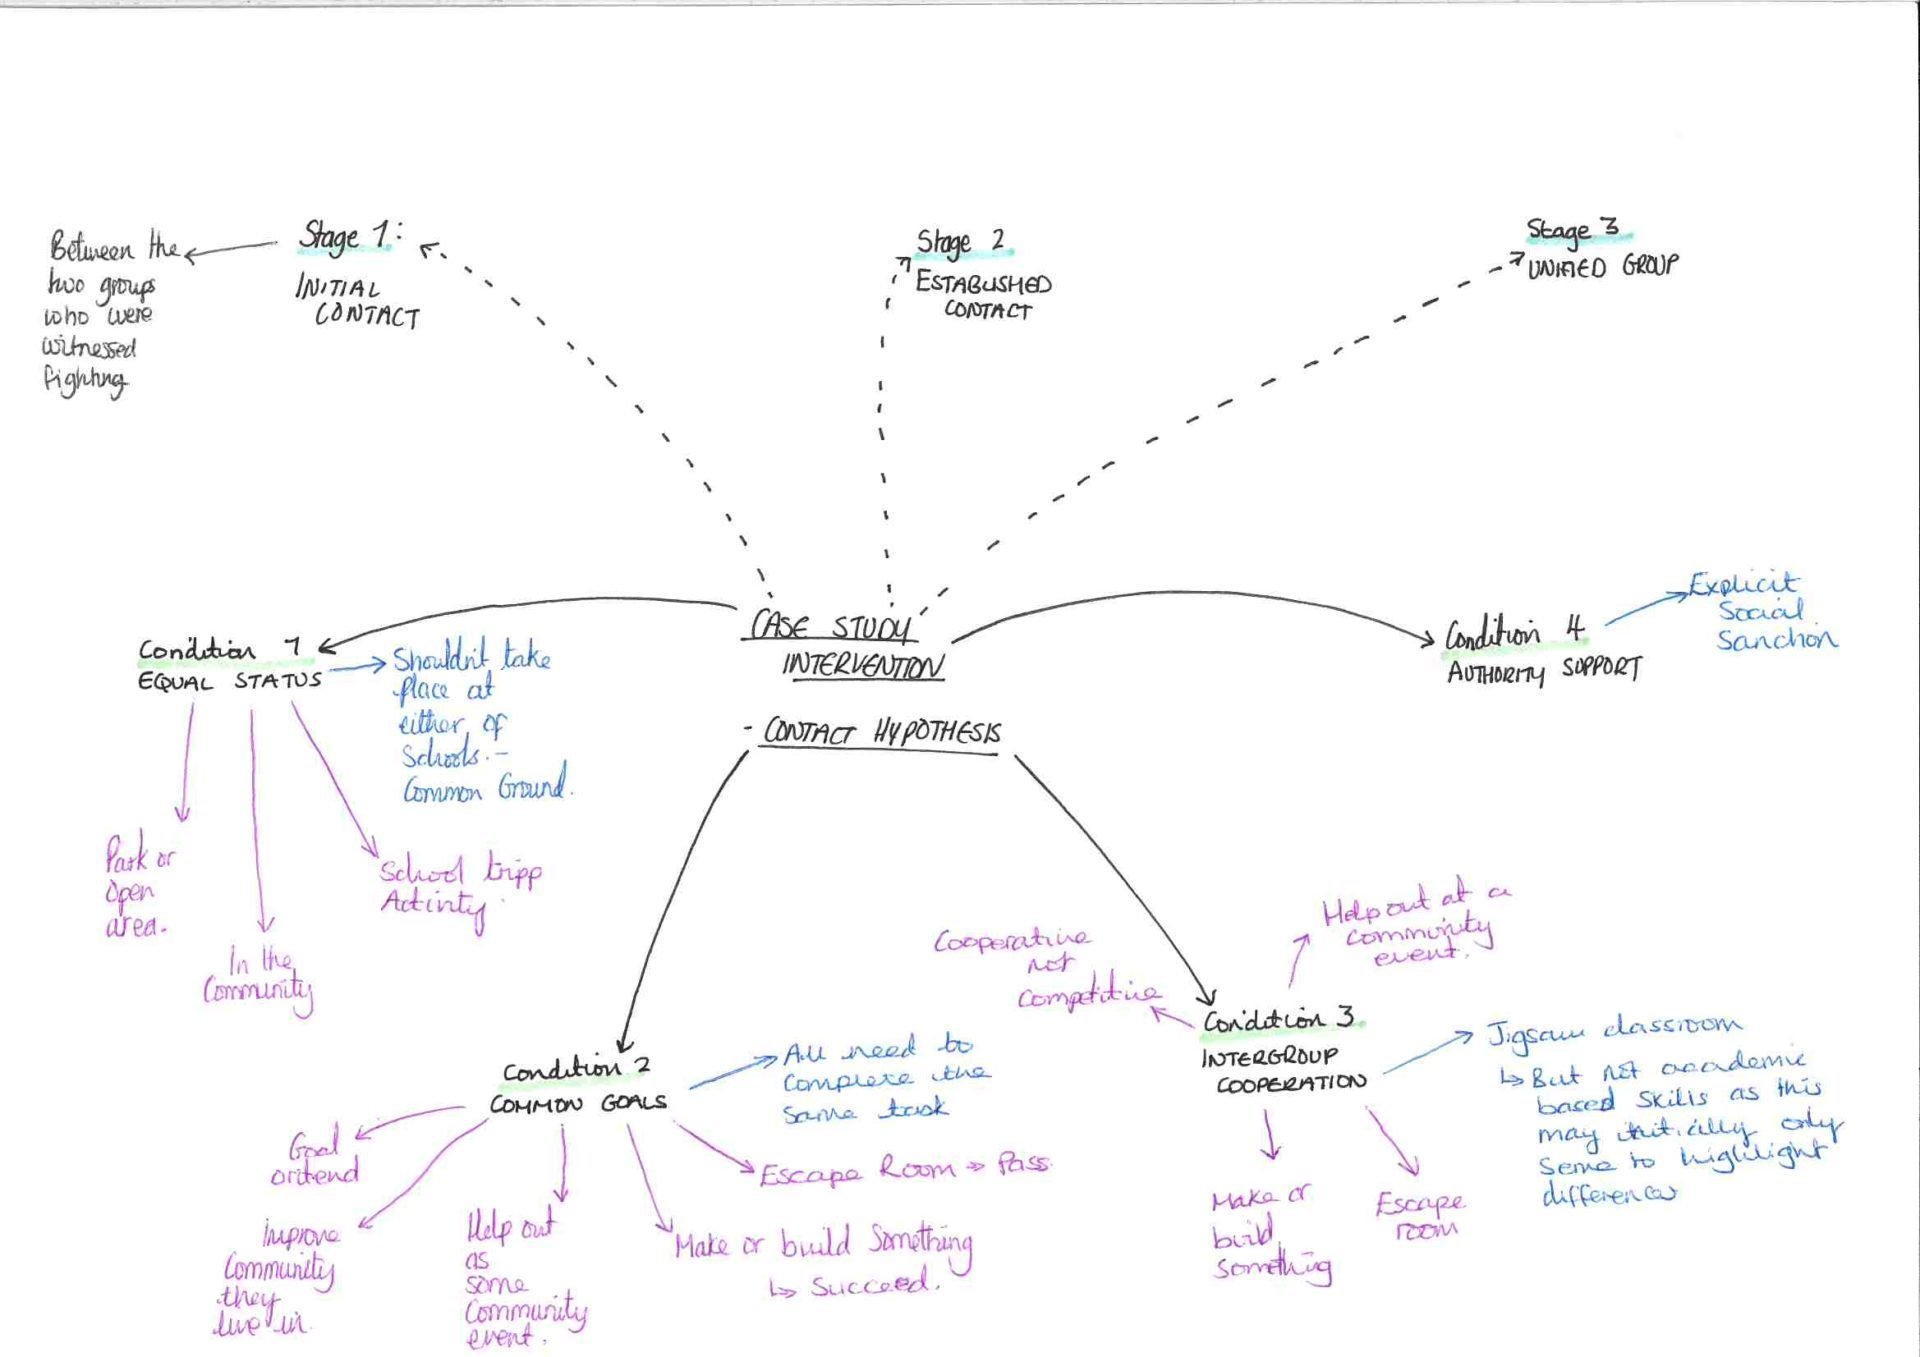 Stage 1:
INITIAL
CONTACT
Between the
two groups
who were
witnessed
fighting
Stage 2
ESTABLISHED
CONTACT
Stage 3
UNIFIED GROUP
CASE STUDY
INTERVENTION
- CONTACT HYPOTHESIS
Condition 1
EQUAL STATUS
Shouldn't take
place at
either of
Schools. -
Common Ground.
Park or
open
area.
In the
Community
School tripp
Activity.
Condition 2
COMMON GOALS
All need to
complete the
same task
Goal
oritend
Improve
Community
they
live in.
Help out
as
some
Community
event.
Make or build Something
↳ Succeed.
Escape Room → Pass.
Condition 3
INTERGROUP
COOPERATION
Cooperative
not
Competitive
Help out at a
community
event.
Jigsaw classroom
↳ But not academic
based skills as this
may initially only
serve to highlight
differences
Make or
build
something
Escape
room
Condition 4
AUTHORITY SUPPORT
Explicit
Social
Sanction